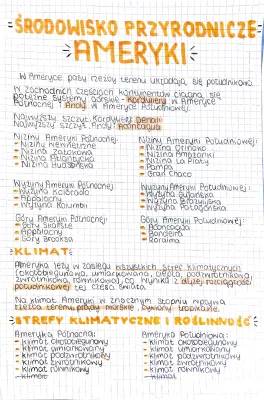 ŚRODOWISKO PRZYRODNICZE
AMERYKI
W Ameryce pasy rzeźby terenu układają się południkowo.
W zachodnich częściach kontynentów ciągną się
potężne systemy górskie - Kordyliery w Ameryce
Północnej i Andy w Ameryce Południowej.
Najwyższy szczyt Kordylierów Denali
Najwyższy szczyt Andy Aconcagua
Niziny Ameryki Północnej:
- Niziny Wewnętrzne
- Nizina Zatokowa
- Nizina Atlantycka
- Nizina Hudsońska
Niziny Ameryki Południowej:
- Nizina Orinoko
- Nizina Amazonki
- Nizina La Platy
- Pampa
- Gran Chaco
Wyżyny Ameryki Północnej:
- Wyżyna Kolorado
- Appalachy
- Wyżyna Kolumbii
Wyżyny Ameryki Południowej:
- Wyżyna Gujańska
- Wyżyna Brazylijska
- Wyżyna Patagońska
Góry Ameryki Północnej:
- Góry Skaliste
- Appalachy
- Góry Brooksa
Góry Ameryki Południowej:
- Aconcagua
- Bandeira
- Roraima
KLIMAT:
Ameryka leży w zasięgu wszystkich stref klimatycznych
(okołobiegunowa, umiarkowana, ciepła, podzwrotnikowa,
zwrotnikowa, równikowa), co wynika z dużej rozciągłości
południkowej tej części świata.
Na klimat Ameryki w znacznym stopniu wpływa
rzeźba terenu, prądy morskie
STREFY KLIMATYCZNE I ROŚLINNOŚĆ
Ameryka Północna:
- klimat okołobiegunowy
- klimat umiarkowany
- klimat podzwrotnikowy
- klimat zwrotnikowy
- klimat równikowy
- klimat
Ameryka Południowa:
- klimat okołobiegunowy
- klimat umiarkowany
- klimat podzwrotnikowy
- klimat zwrotnikowy
- klimat równikowy
- klimat